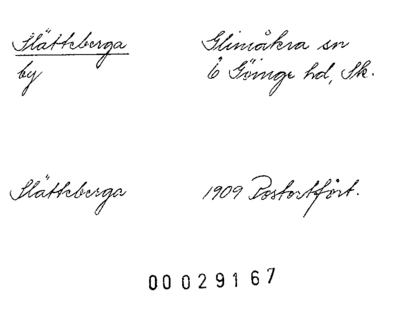 Slätteberga Glimåkra sn
by Ö Göinge hd, Sk.
Slätteberga 1909 Postortfört.
00029167